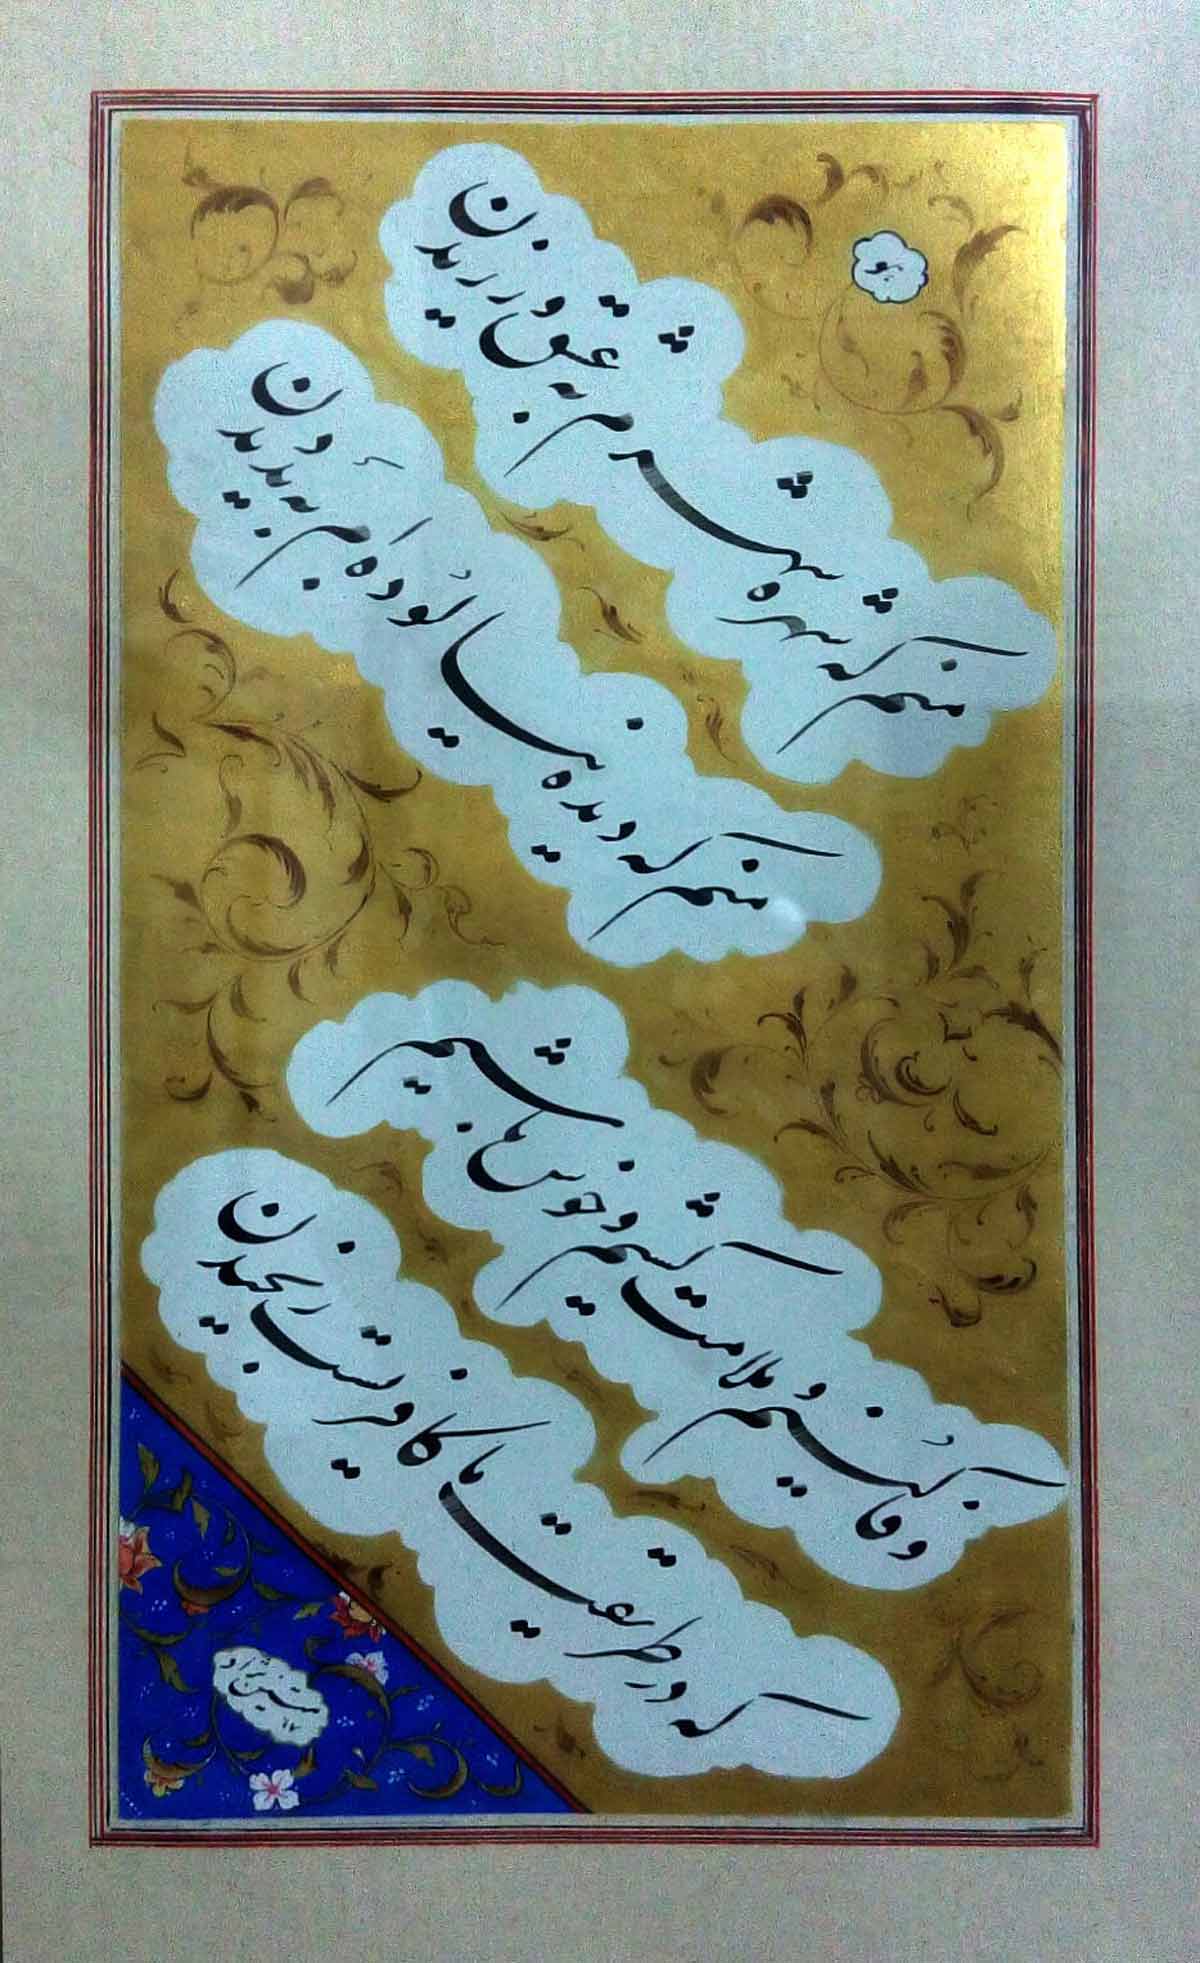 هو
منم که شهره شهرم به عشق ورزیدن
منم که دیده نیالوده‌ام به بد دیدن
وفا کنیم و ملامت کشیم و خوش باشیم
که در طریقت ما کافریست رنجیدن